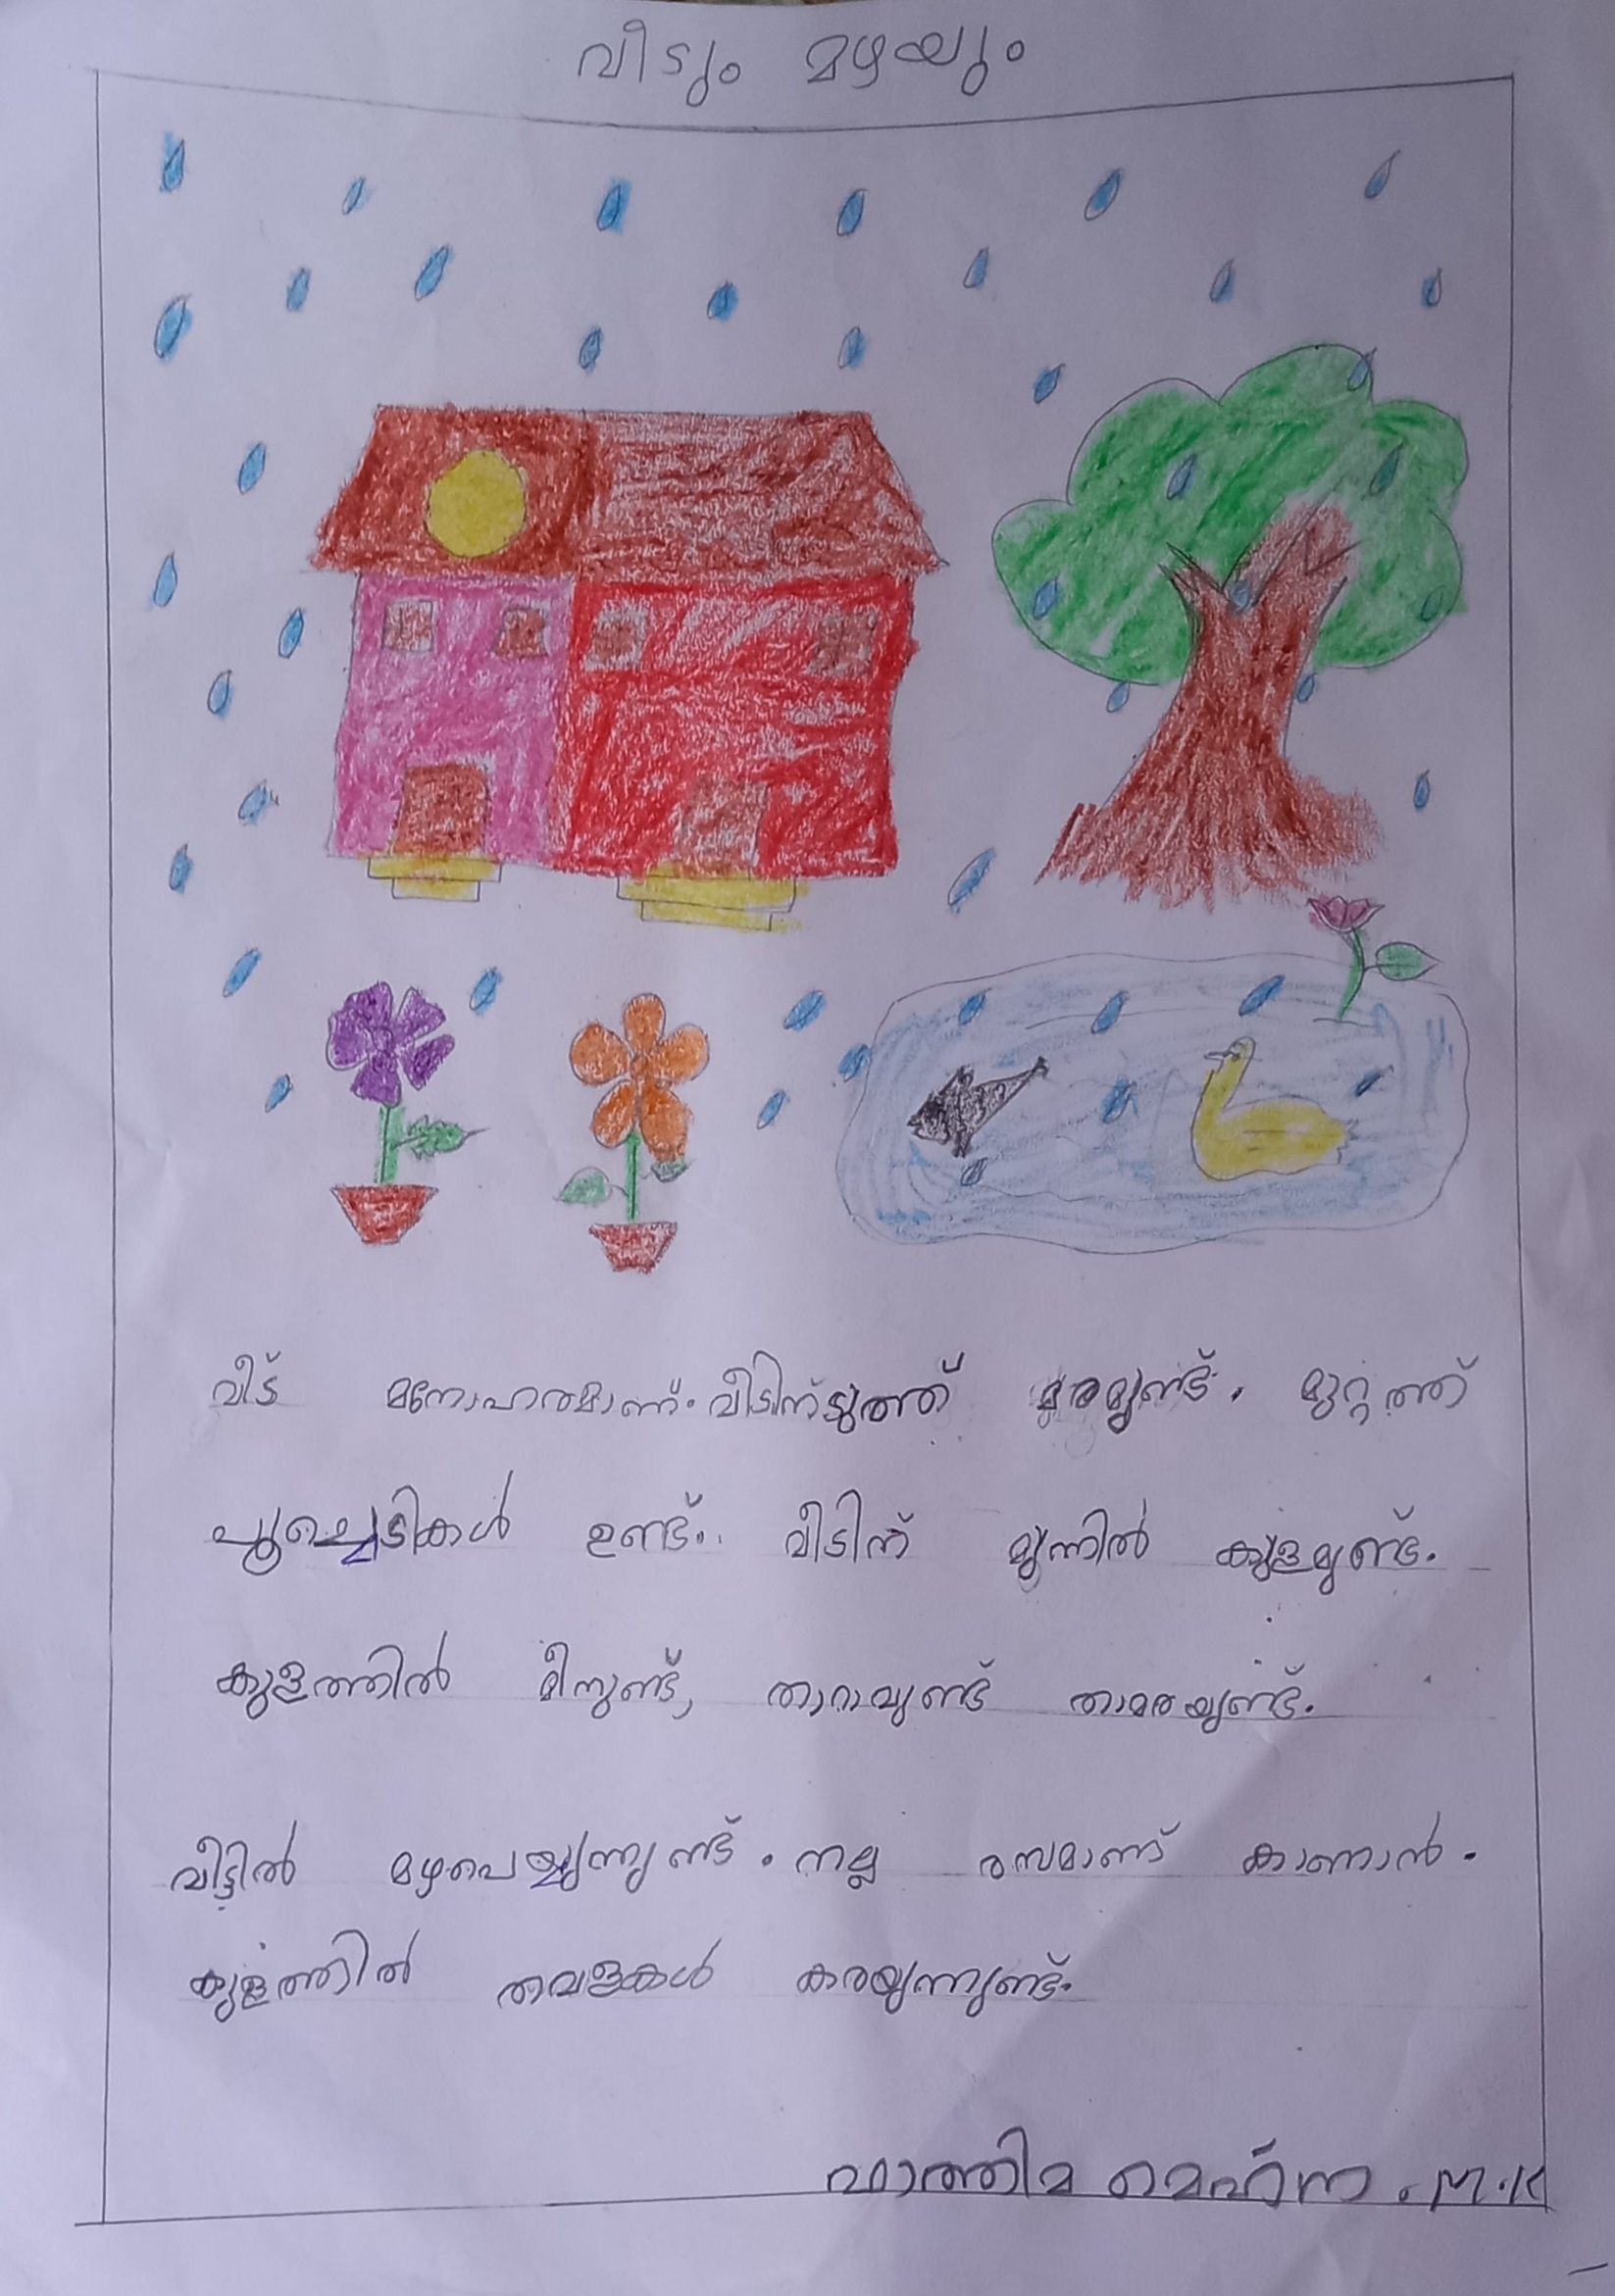 വീടും മഴയും
വീട് മനോഹരമാണ്. വീടിന്ടുത്ത് മരമുണ്ട്. മുറ്റത്ത്
പൂച്ചെടികൾ ഉണ്ട്. വീടിന് മുന്നിൽ കുളമുണ്ട്.
കുളത്തിൽ മീനുണ്ട്, താറാവുണ്ട് താമരയുണ്ട്.
വീട്ടിൽ മഴപെയ്യുന്നുണ്ട്. നല്ല രസമാണ് കാണാൻ.
കുളത്തിൽ തവളകൾ കരയുന്നുണ്ട്.
ഫാത്തിമ മെഹ്ന. M.K